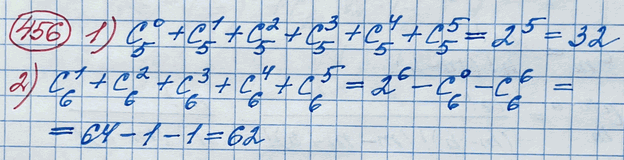 456 1) C₅⁰ + C₅¹ + C₅² + C₅³ + C₅⁴ + C₅⁵ = 2⁵ = 32
2) C₆¹ + C₆² + C₆³ + C₆⁴ + C₆⁵ = 2⁶ − C₆⁰ − C₆⁶ =
= 64 − 1 − 1 = 62